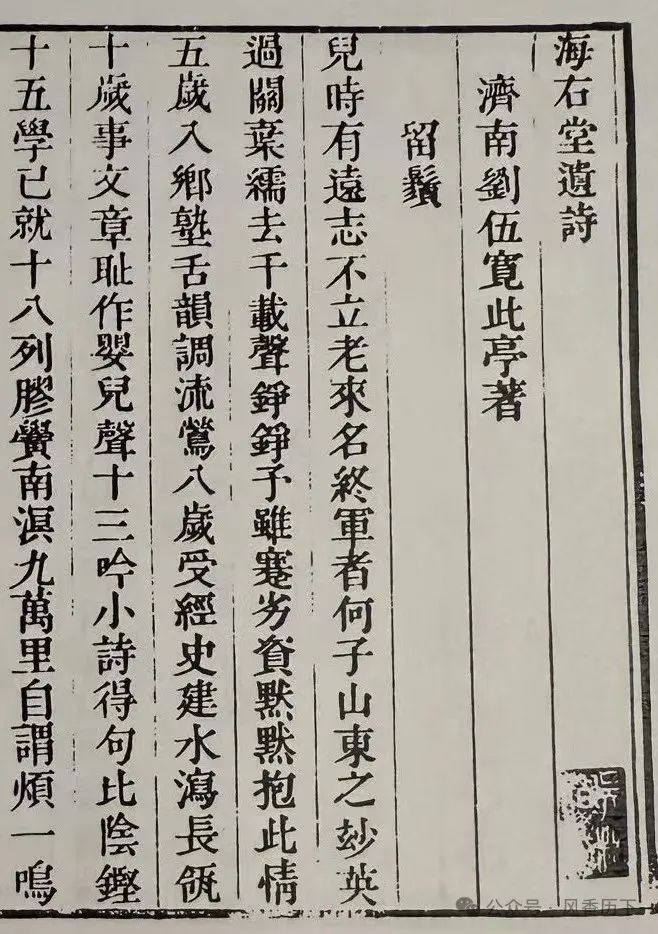 海右堂遺詩
濟南劉伍寬此亭著
留鬚
兒時有遠志不立老來名終軍者何子山東之玅英
過關棄繻去千載聲錚錚予雖蹇劣資默默抱此情
五歲入鄉塾舌韻調流鶯八歲受經史建水瀉長瓴
十歲事文章恥作嬰兒聲十三吟小詩得句比陰鏗
十五學已就十八列膠黌南溟九萬里自謂煩一鳴
公众号·风香历下